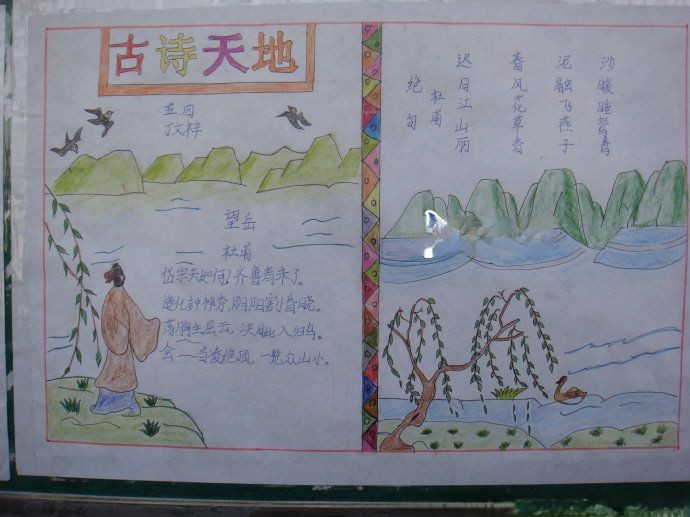 古诗天地
五.四
丁文梓
望岳
杜甫
岱宗夫如何了齐鲁青未了。
造化钟神秀,阴阳割昏晓。
荡胸生层云,决眦入归鸟。
会当凌绝顶,一览众山小。
绝句
杜甫
迟日江山丽
春风花草香
泥融飞燕子
沙暖睡鸳鸯